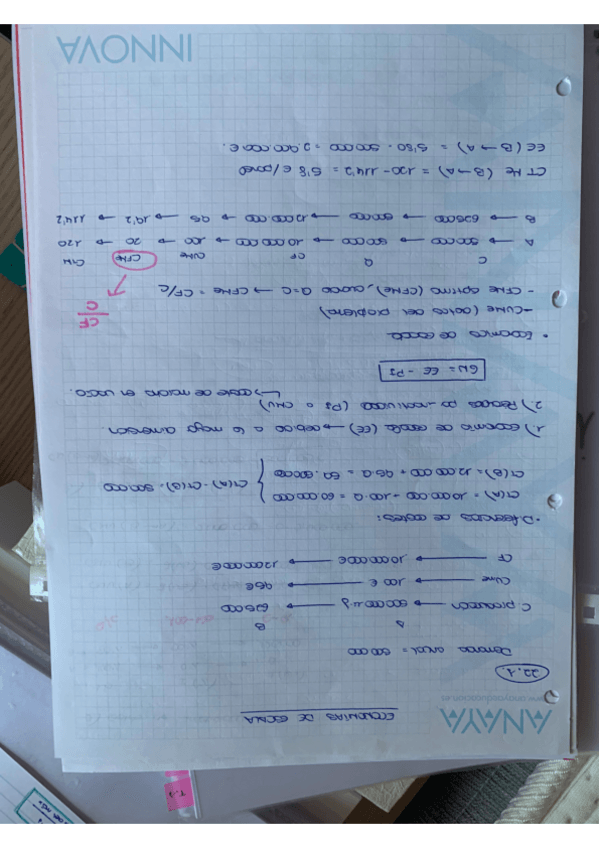 ANAYA
www.anayaeducacion.es
ECONOMÍAS DE ESCALA
22.1.
Demanda anual = 500000
A B
C. producción → 500000 u.f. → 625000
CUMe → 100 € → 95€
CF → 10000000€ → 12000000€
• Diferencias de costes:
CT(A) = 10000000 + 100·Q = 60000000
CT(B) = 12000000 + 95·Q =
CT(A) - CT(B) =
1) Economía de escala (EE) → debido a la mayor dimensión.
2) Pérdidas por inactividad (PI o CNU)
↳ coste de inactiv. en vacío.
GN = EE - PI
• Economías de escala
- CUMe (datos del problema)
- CFMe óptimo (CFMe), cuando Q=C → CFMe = CF/C
CF/C
C Q CF CUMe CFMe CTM
A → 500000 → 500000 → 10000000 → 100 → 20 → 120
B → 625000 → 500000 → 12000000 → 95 → 19'2 → 114'2
CTMe (B→A) = 120 - 114'2 = 5'8 €/
EE (B→A) = 5'80 · 500000 = 2900000€.
INNOVA